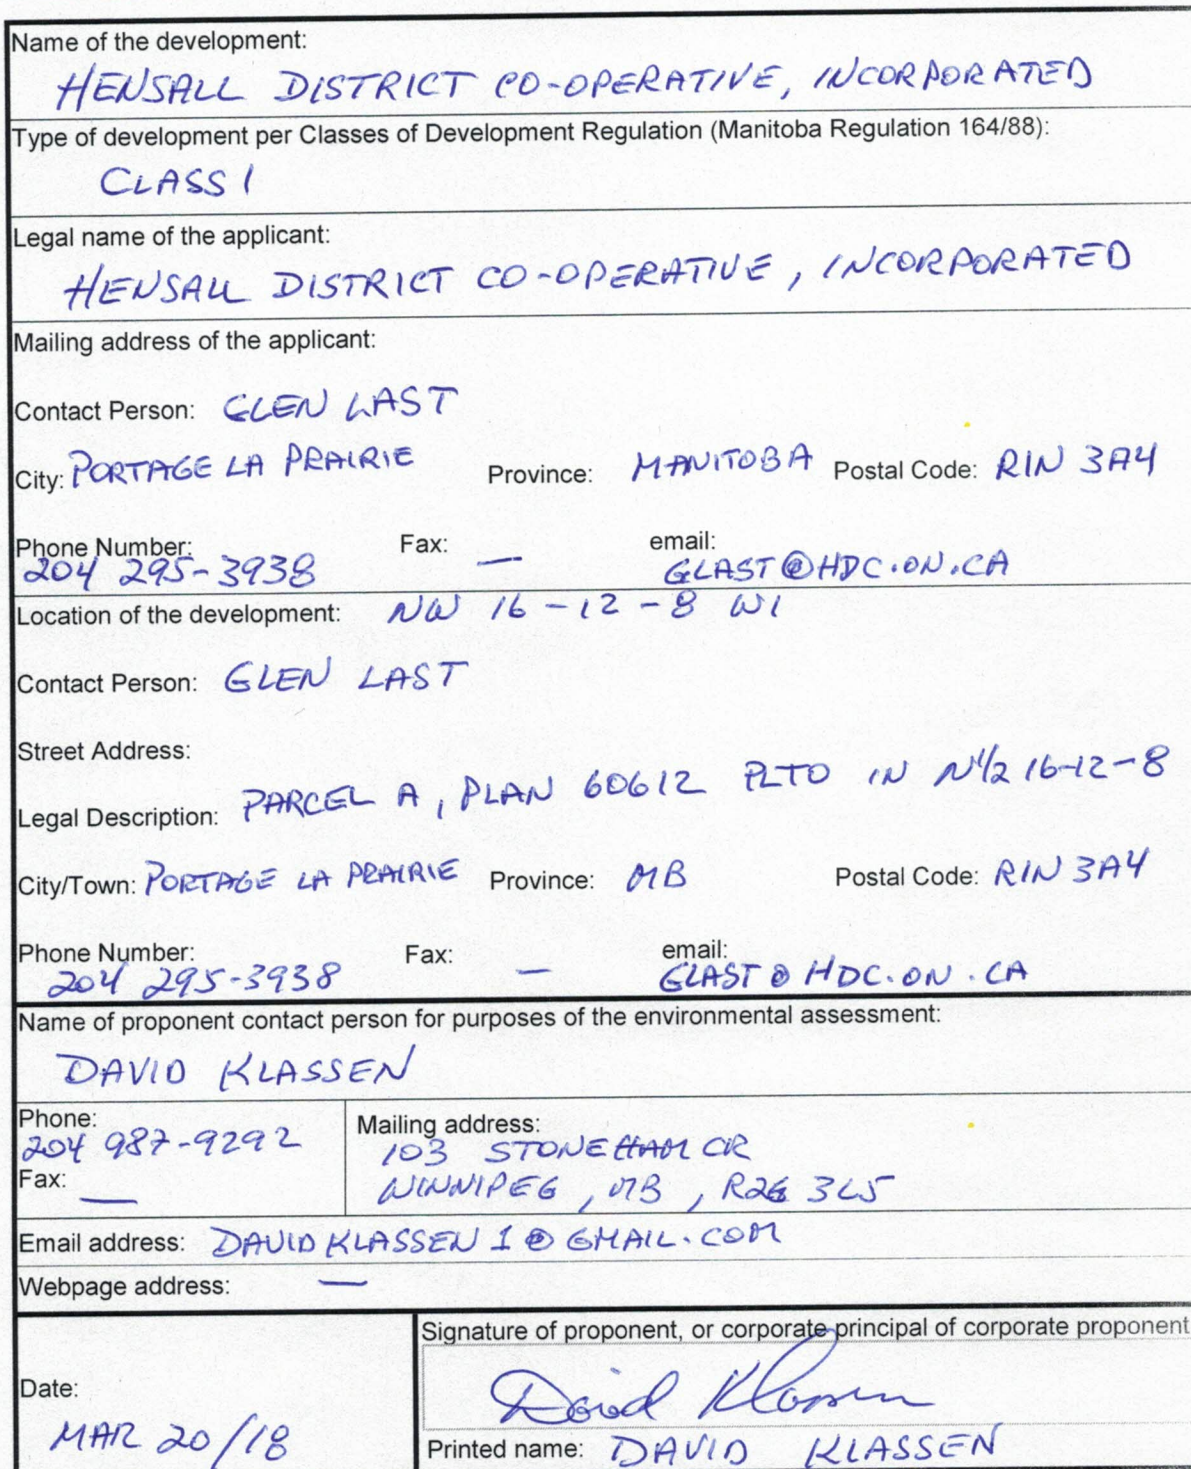 Name of the development:
HENSALL DISTRICT CO-OPERATIVE, INCORPORATED
Type of development per Classes of Development Regulation (Manitoba Regulation 164/88):
CLASS 1
Legal name of the applicant:
HENSALL DISTRICT CO-OPERATIVE, INCORPORATED
Mailing address of the applicant:
Contact Person: GLEN LAST
City: PORTAGE LA PRAIRIE Province: MANITOBA Postal Code: R1N 3A4
Phone Number: Fax: email:
204 295-3938 — GLAST@HDC.ON.CA
Location of the development: NW 16-12-8 W1
Contact Person: GLEN LAST
Street Address:
Legal Description: PARCEL A, PLAN 60612 PLTO IN N1/2 16-12-8
City/Town: PORTAGE LA PRAIRIE Province: MB Postal Code: R1N 3A4
Phone Number: Fax: email:
204 295-3938 — GLAST@HDC.ON.CA
Name of proponent contact person for purposes of the environmental assessment:
DAVID KLASSEN
Phone:
204 987-9292
Fax: —
Mailing address:
103 STONEHAM CR
WINNIPEG, MB, R2G 3L5
Email address: DAVIDKLASSEN1@GMAIL.COM
Webpage address: —
Date:
MAR 20/18
Signature of proponent, or corporate principal of corporate proponent
David Klassen
Printed name: DAVID KLASSEN